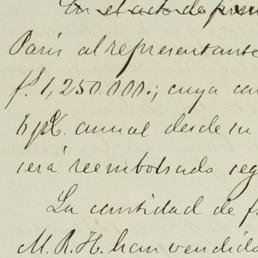 En el acto de
París al representante
f.s 1,250.000.; cuya
6 p% anual desde su
será reembolsado
La cantidad de f
M. R. H. han vendido